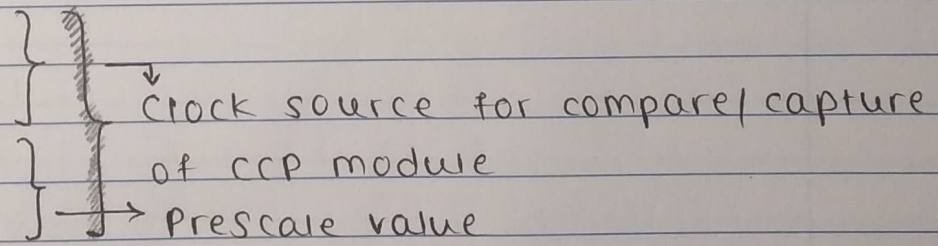 Clock source for compare/ capture
of CCP module
Prescale value